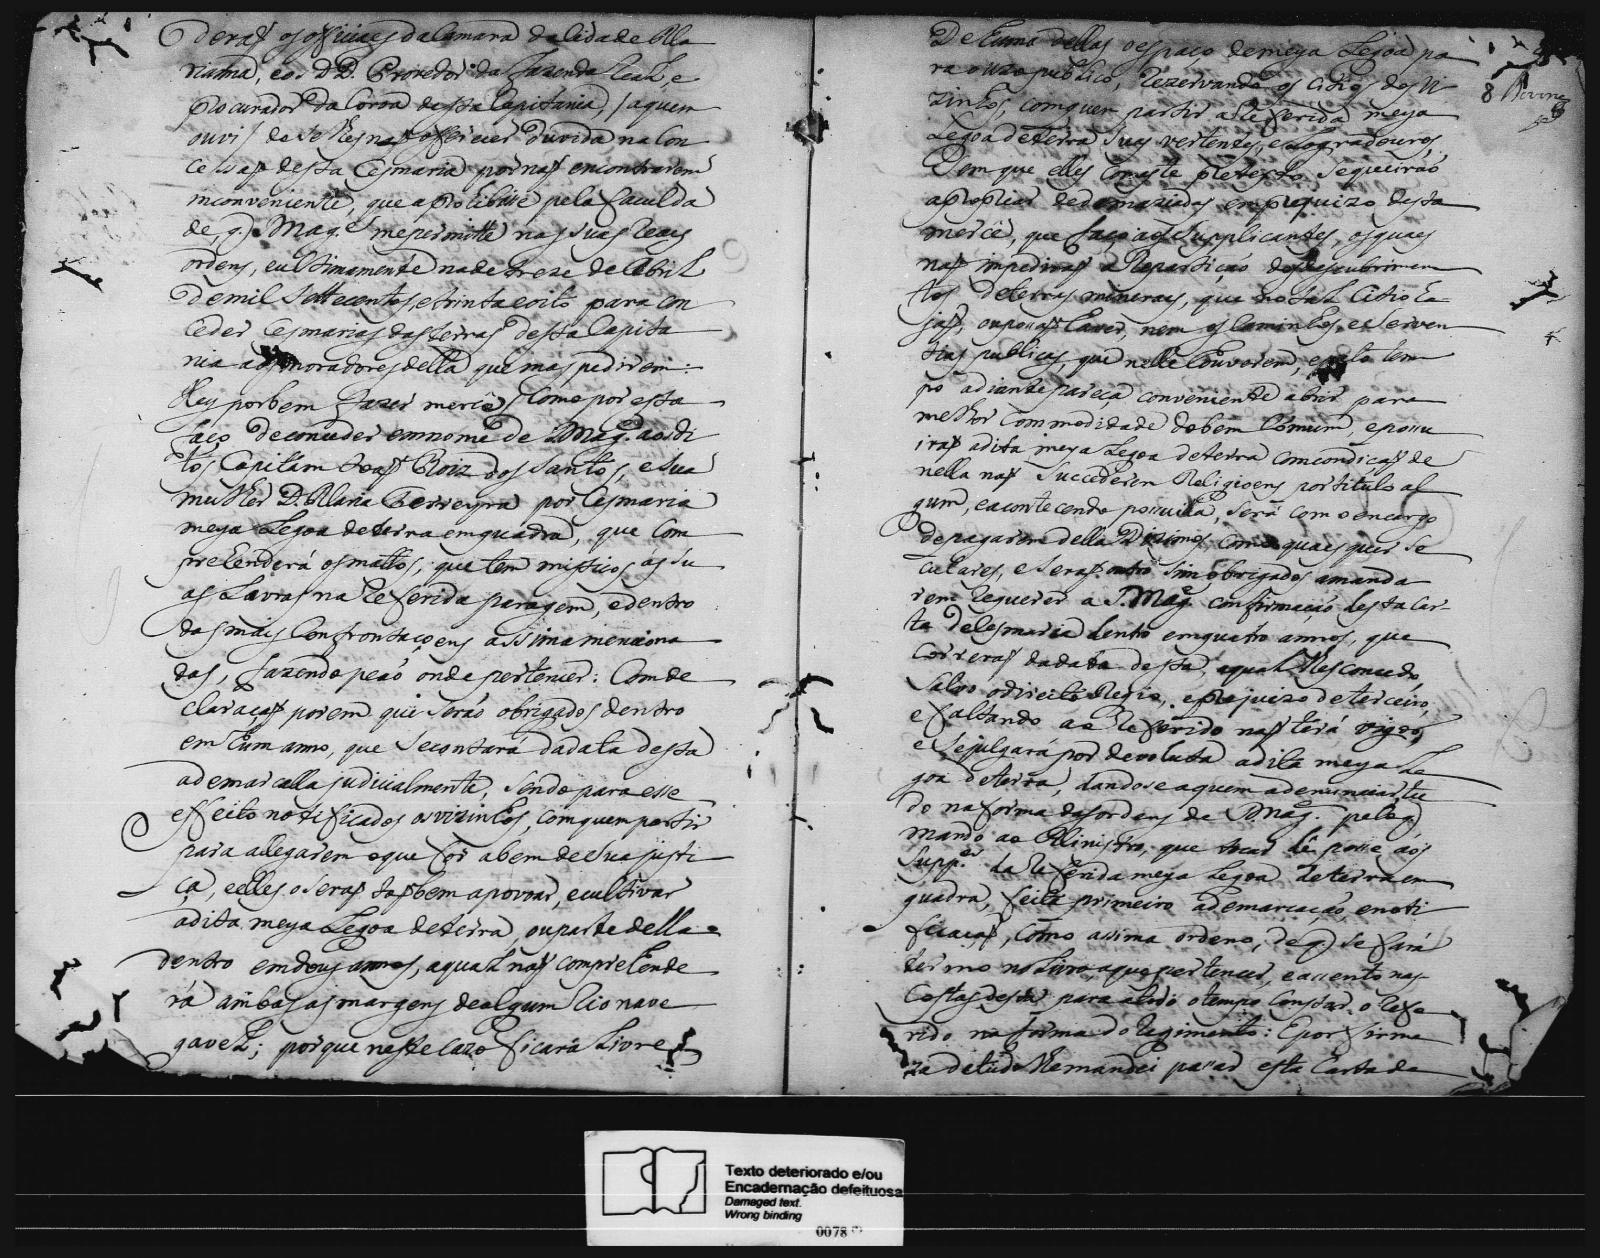 deraõ os officiaes da Camara da Cidade Ma
riana, e os DD. Provedor da Fazenda Real, e
Procurador da Coroa desta Capitania, /a quem
ouvi/ de se lhes naõ offerecer duvida na con
cessaõ desta Cesmaria por naõ encontrarem
inconveniente, que a prohibisse pela faculda
de, q̃ S. Mag.e me permitte nas suas Reaes
ordens, e ultimamente na de treze de Abril
de mil settecentos, e trinta e oito para con
ceder Cesmarias das terras desta Capita
nia aos moradores della que mas pedirem:
Hey por bem fazer mercê (como por esta
faço) de conceder em nome de S. Mag.e aos di
tos Capitam Joaõ Roiz dos Santos, e sua
mulher D. Maria Ferreyra por Cesmaria
meya Legoa de terra em quadra, que com
prehenderá os mattos, que tem misticos ás su
as Lavras na referida paragem, e dentro
das mais Confrontaçoens assima menciona
das, fazendo peaõ onde pertencer: Com de
claraçaõ porem que seráõ obrigados dentro
em hum anno, que se contará da data desta
a demarcalla judicialmente, sendo para esse
effeito notificados os vizinhos, com quem partir
para allegarem o que for a bem de sua justi
ça, e elles o seraõ taõbem a povoar, e cultivar
a dita meya Legoa de terra, ou parte della
dentro em dous annos, a qual naõ comprehende
rá ambas as margens de algum Rio nave
gavel; porque neste cazo ficará Livre
de huma dellas o espaço de meya Legoa pa
ra o uzo publico, rezervando os citios dos vi
zinhos, com quem partir a referida meya
Legoa de terra suas vertentes, e logradouros,
sem que elles com este pretexto se queiraõ
apropriar de demaziadas em prejuizo desta
mercê, que faço aos Supplicantes, os quaes
naõ impediraõ a repartiçaõ dos descubrimen
tos de terras mineraes, que no tal Citio ha-
jaõ, ou possaõ haver, nem os Caminhos, e serven
tias publicas, que nelle houverem, e pelo tem
po adiante pareça conveniente abrir para
melhor commodidade do bem Cõmum, e possu
iraõ a dita meya Legoa de terra com condiçaõ de
nella naõ succederem Religioens por titulo al
gum, e acontecendo possuila, será com o encargo
de pagarem della Dizimos como quaesquer se
culares, e seraõ outro sim obrigados a manda
rem requerer a S. Mag.e confirmaçaõ desta Car-
ta de Cesmaria dentro em quatro annos, que
correraõ da data desta, a qual lhes concedo
salvo o direito Regio, e prejuizo de terceiro,
e faltando ao referido naõ terá vigor,
e se julgará por devoluta a dita meya Le
goa de terra, dandose a quem a denunciar, tu
do na forma das ordens de S. Mag.e pelo q̃
mando ao Ministro, que tocar dê posse aos
Supp.es da referida meya Legoa de terra em
quadra, feita primeiro a demarcaçaõ, e noti
ficaçaõ, como assima ordeno, de q̃ se fará
termo no Livro, a que pertencer, e assento nas
Costas desta para a todo o tempo Constar o refe
rido na forma do Regimento: E por firme
za de tudo lhe mandei passar esta Carta de
8
Texto deteriorado e/ou
Encadernação defeituosa
Damaged text.
Wrong binding
0078